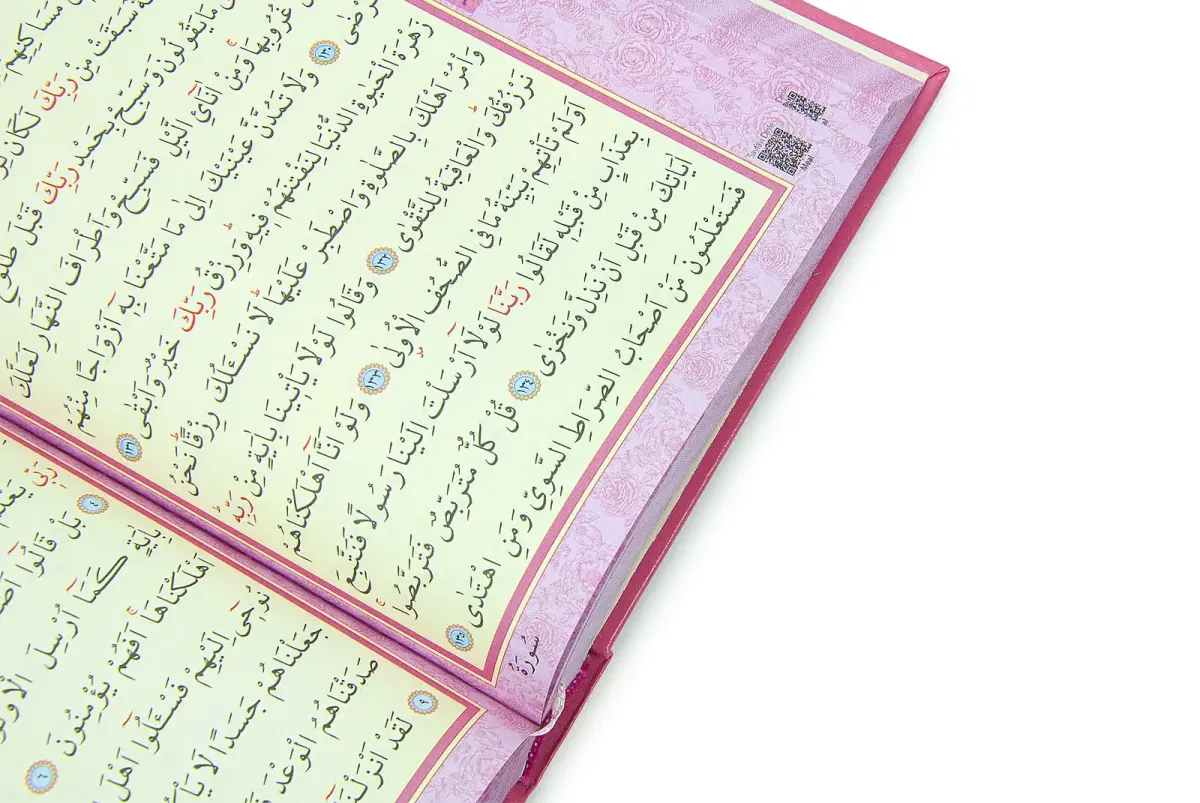 مَسَاكِنِهِمْ
سَبَقَتْ مِنْ رَبِّكَ لَكَانَ
مَا يَقُولُونَ وَسَبِّحْ بِحَمْدِ رَبِّكَ قَبْلَ طُلُوعِ
غُرُوبِهَا وَمِنْ اٰنَآئِ الَّيْلِ فَسَبِّحْ وَاَطْرَافَ النَّهَارِ لَعَلَّكَ
١٣٠ وَلَا تَمُدَّنَّ عَيْنَيْكَ اِلٰى مَا مَتَّعْنَا بِهٖٓ اَزْوَاجًا مِنْهُمْ
زَهْرَةَ الْحَيٰوةِ الدُّنْيَا لِنَفْتِنَهُمْ فِيهِ وَرِزْقُ رَبِّكَ خَيْرٌ وَاَبْقٰى ١٣١
وَأْمُرْ اَهْلَكَ بِالصَّلٰوةِ وَاصْطَبِرْ عَلَيْهَا لَا نَسْـَٔلُكَ رِزْقًا نَحْنُ
نَرْزُقُكَ وَالْعَاقِبَةُ لِلتَّقْوٰى ١٣٢ وَقَالُوا لَوْلَا يَأْتِينَا بِاٰيَةٍ مِنْ رَبِّهٖ
اَوَلَمْ تَأْتِهِمْ بَيِّنَةُ مَا فِي الصُّحُفِ الْاُولٰى ١٣٣ وَلَوْ اَنَّٓا اَهْلَكْنَاهُمْ
بِعَذَابٍ مِنْ قَبْلِهٖ لَقَالُوا رَبَّنَا لَوْلَٓا اَرْسَلْتَ اِلَيْنَا رَسُولًا فَنَتَّبِعَ
اٰيَاتِكَ مِنْ قَبْلِ اَنْ نَذِلَّ وَنَخْزٰى ١٣٤ قُلْ كُلٌّ مُتَرَبِّصٌ فَتَرَبَّصُوا
فَسَتَعْلَمُونَ مَنْ اَصْحَابُ الصِّرَاطِ السَّوِيِّ وَمَنِ اهْتَدٰى ١٣٥
سُورَةُ
رَبِّي يَعْلَمُ
٤ بَلْ قَالُٓوا
بِاٰيَةٍ كَمَٓا اُرْسِلَ
اَهْلَكْنَاهَا اَفَهُمْ يُؤْمِنُونَ ٦
نُوحِٓي اِلَيْهِمْ فَسْـَٔلُٓوا اَهْلَ
جَعَلْنَاهُمْ جَسَدًا لَا
صَدَقْنَاهُمُ الْوَعْدَ
٩ لَقَدْ اَنْزَلْنَٓا